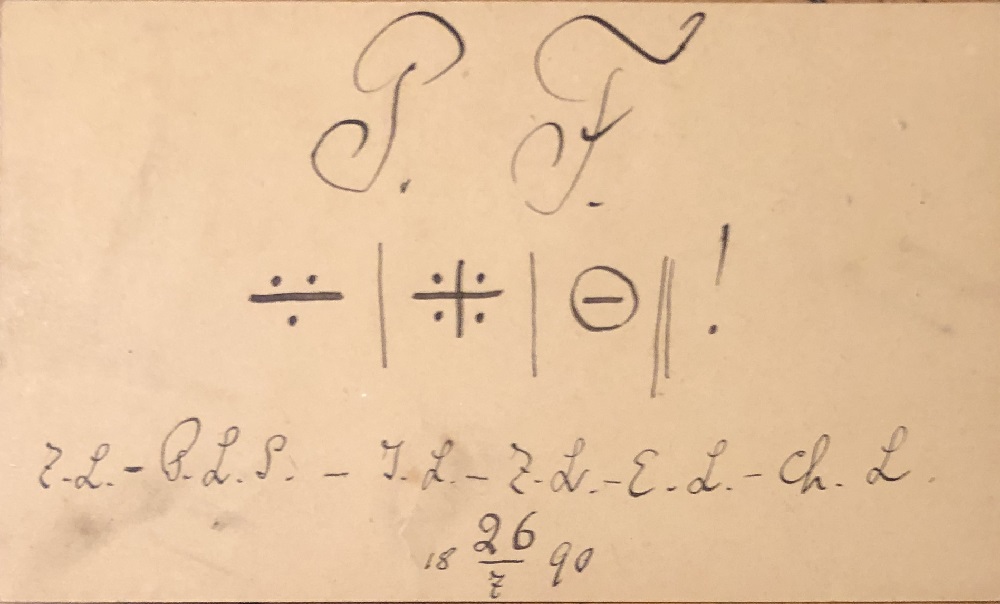 P. F.
÷ | ⊖ || !
Z. L. - P. L. S. - I. L. - Z. L. - E. L. - Ch. L.
18 26/7 90